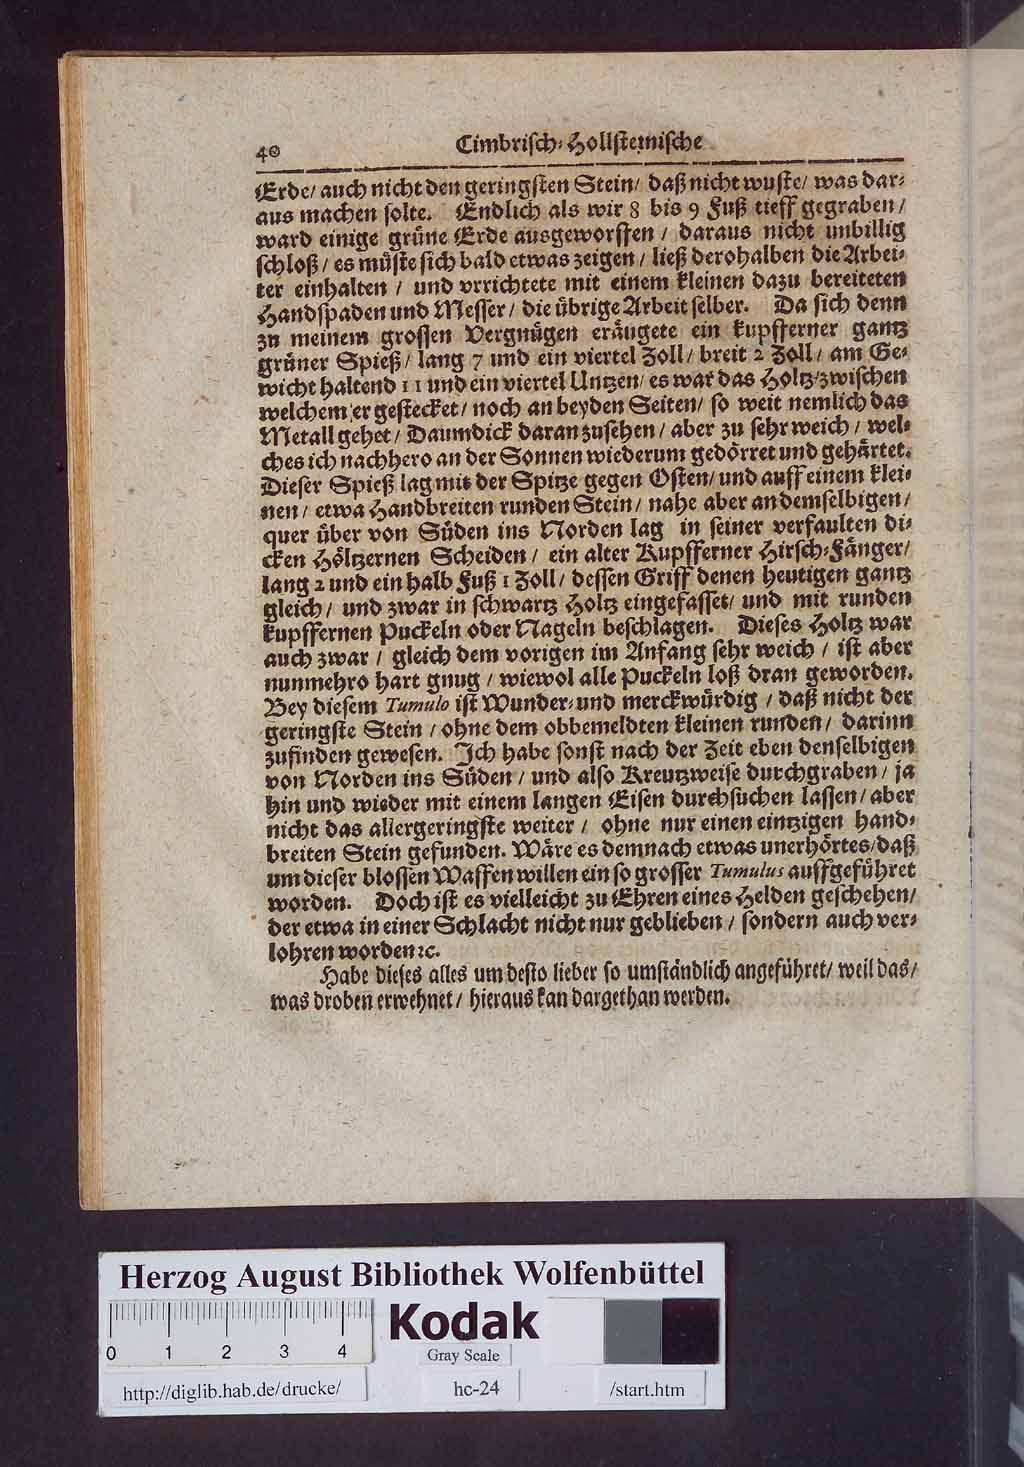 40 Cimbrisch-Hollsteinische
Erde/ auch nicht den geringsten Stein/ daß nicht wuste/ was dar-
aus machen solte. Endlich als wir 8 bis 9 Fuß tieff gegraben/
ward einige grüne Erde ausgeworffen/ daraus nicht unbillig
schloß/ es müste sich bald etwas zeigen/ ließ derohalben die Arbei-
ter einhalten/ und vrrichtete mit einem kleinen dazu bereiteten
Handspaden und Messer/ die übrige Arbeit selber. Da sich denn
zu meinem grossen Vergnügen eräugete ein kupfferner gantz
grüner Spieß/ lang 7 und ein viertel Zoll/ breit 2 Zoll/ am Ge-
wicht haltend 11 und ein viertel Untzen/ es war das Holtz/ zwischen
welchem er gestecket/ noch an beyden Seiten/ so weit nemlich das
Metall gehet/ Daumdick daran zusehen/ aber zu sehr weich/ wel-
ches ich nachhero an der Sonnen wiederum gedörret und gehärtet.
Dieser Spieß lag mit der Spitze gegen Osten/ und auff einem klei-
nen/ etwa Handbreiten runden Stein/ nahe aber an demselbigen/
quer über von Süden ins Norden lag in seiner verfaulten di-
cken Höltzernen Scheiden/ ein alter Kupfferner Hirsch-Fänger/
lang 2 und ein halb Fuß 1 Zoll/ dessen Griff denen heutigen gantz
gleich/ und zwar in schwartz Holtz eingefasset/ und mit runden
kupffernen Puckeln oder Nageln beschlagen. Dieses Holtz war
auch zwar/ gleich dem vorigen im Anfang sehr weich/ ist aber
nunmehro hart gnug/ wiewol alle Puckeln loß dran geworden.
Bey diesem Tumulo ist Wunder- und merckwürdig/ daß nicht der
geringste Stein/ ohne dem obbemeldten kleinen runden/ darinn
zufinden gewesen. Ich habe sonst nach der Zeit eben denselbigen
von Norden ins Süden/ und also Kreutzweise durchgraben/ ja
hin und wieder mit einem langen Eisen durchsuchen lassen/ aber
nicht das allergeringste weiter/ ohne nur einen eintzigen hand-
breiten Stein gefunden. Wäre es demnach etwas unerhörtes/ daß
um dieser blossen Waffen willen ein so grosser Tumulus auffgeführet
worden. Doch ist es vielleicht zu Ehren eines Helden geschehen/
der etwa in einer Schlacht nicht nur geblieben/ sondern auch ver-
lohren worden ꝛc.
Habe dieses alles um desto lieber so umständlich angeführet/ weil das/
was droben erwehnet/ hieraus kan dargethan werden.
Herzog August Bibliothek Wolfenbüttel
0 1 2 3 4
Kodak
Gray Scale
http://diglib.hab.de/drucke/ hc-24 /start.htm